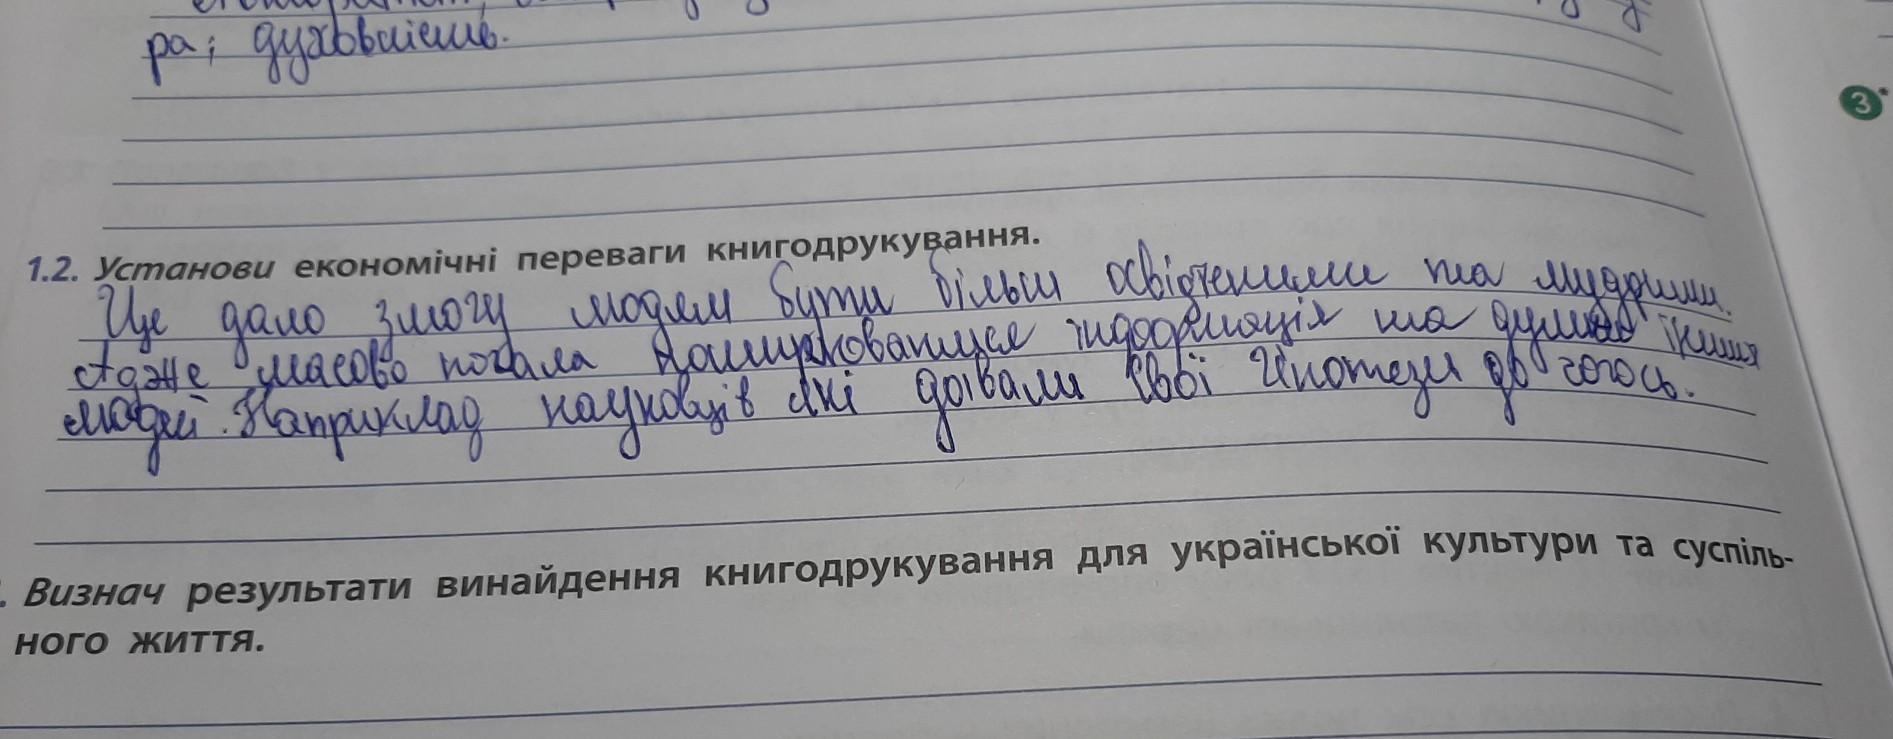 ра; духовність.
3*
1.2. Установи економічні переваги книгодрукування.
Це дало змогу людям бути більш освіченими та мудрими.
Адже масово почала поширюватися інформація та думка інших
людей. Наприклад науковців які давали свої гіпотези до чогось.
Визнач результати винайдення книгодрукування для української культури та суспіль-
ного життя.